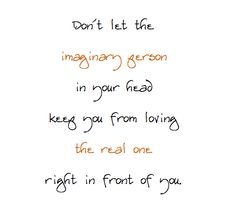 Don't let the
imaginary person
in your head
keep you from loving
the real one
right in front of you.